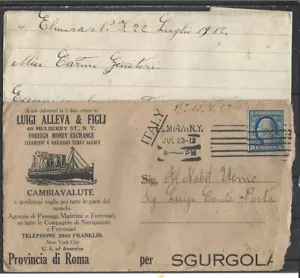 Elmira N. Y. 22 Luglio 1912.
Miss
If not delivered in 5 days return to
LUIGI ALLEVA & FIGLI
60 MULBERRY ST., N. Y.
FOREIGN MONEY EXCHANGE
STEAMSHIP & RAILROAD TICKET AGENCY
CAMBIAVALUTE
e spedisconsi vaglia per tutte le parti del mondo.
Agenzia di Passaggi Marittimi e Ferroviari,
su tutte le Compagnie di Navigazioni
e Ferroviari.
TELEPHONE 2860 FRANKLIN.
New York City
U. S. of America
ITALY
ELMIRA, N.Y.
JUL 23-12
8-PM
Sig.
Sig. Luigi Conte Porta
Provincia di Roma per SGURGOLA